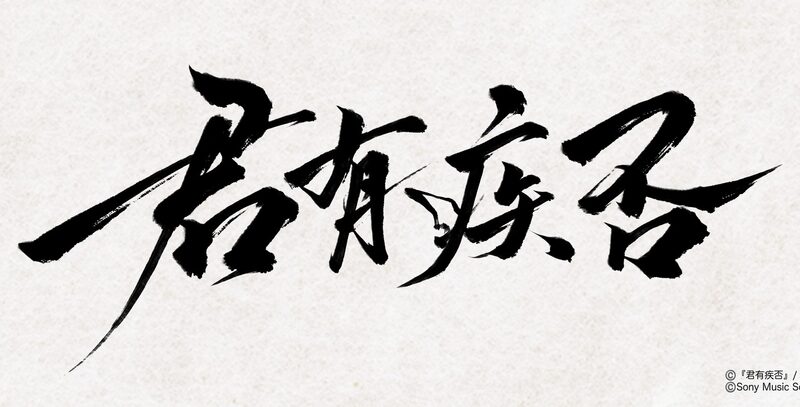 君有疾否
©『君有疾否』/
©Sony Music So